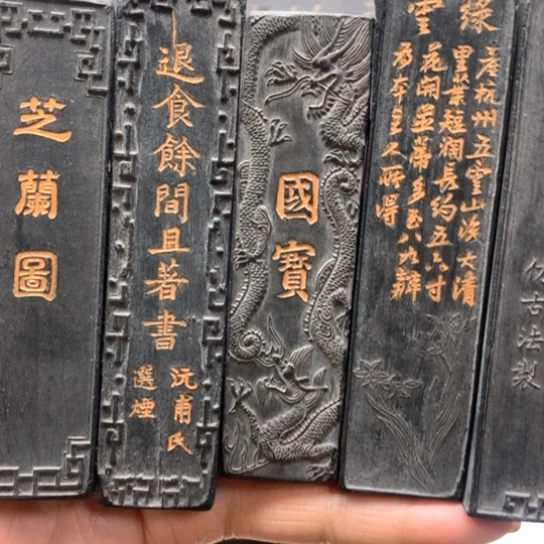 芝蘭圖
退食餘間且著書
沅甫氏
選煙
國寶
產杭州五雲山後大清
里葉短闊長約五六寸
花開並蒂多至八九瓣
為本堂人所得
仿古法製